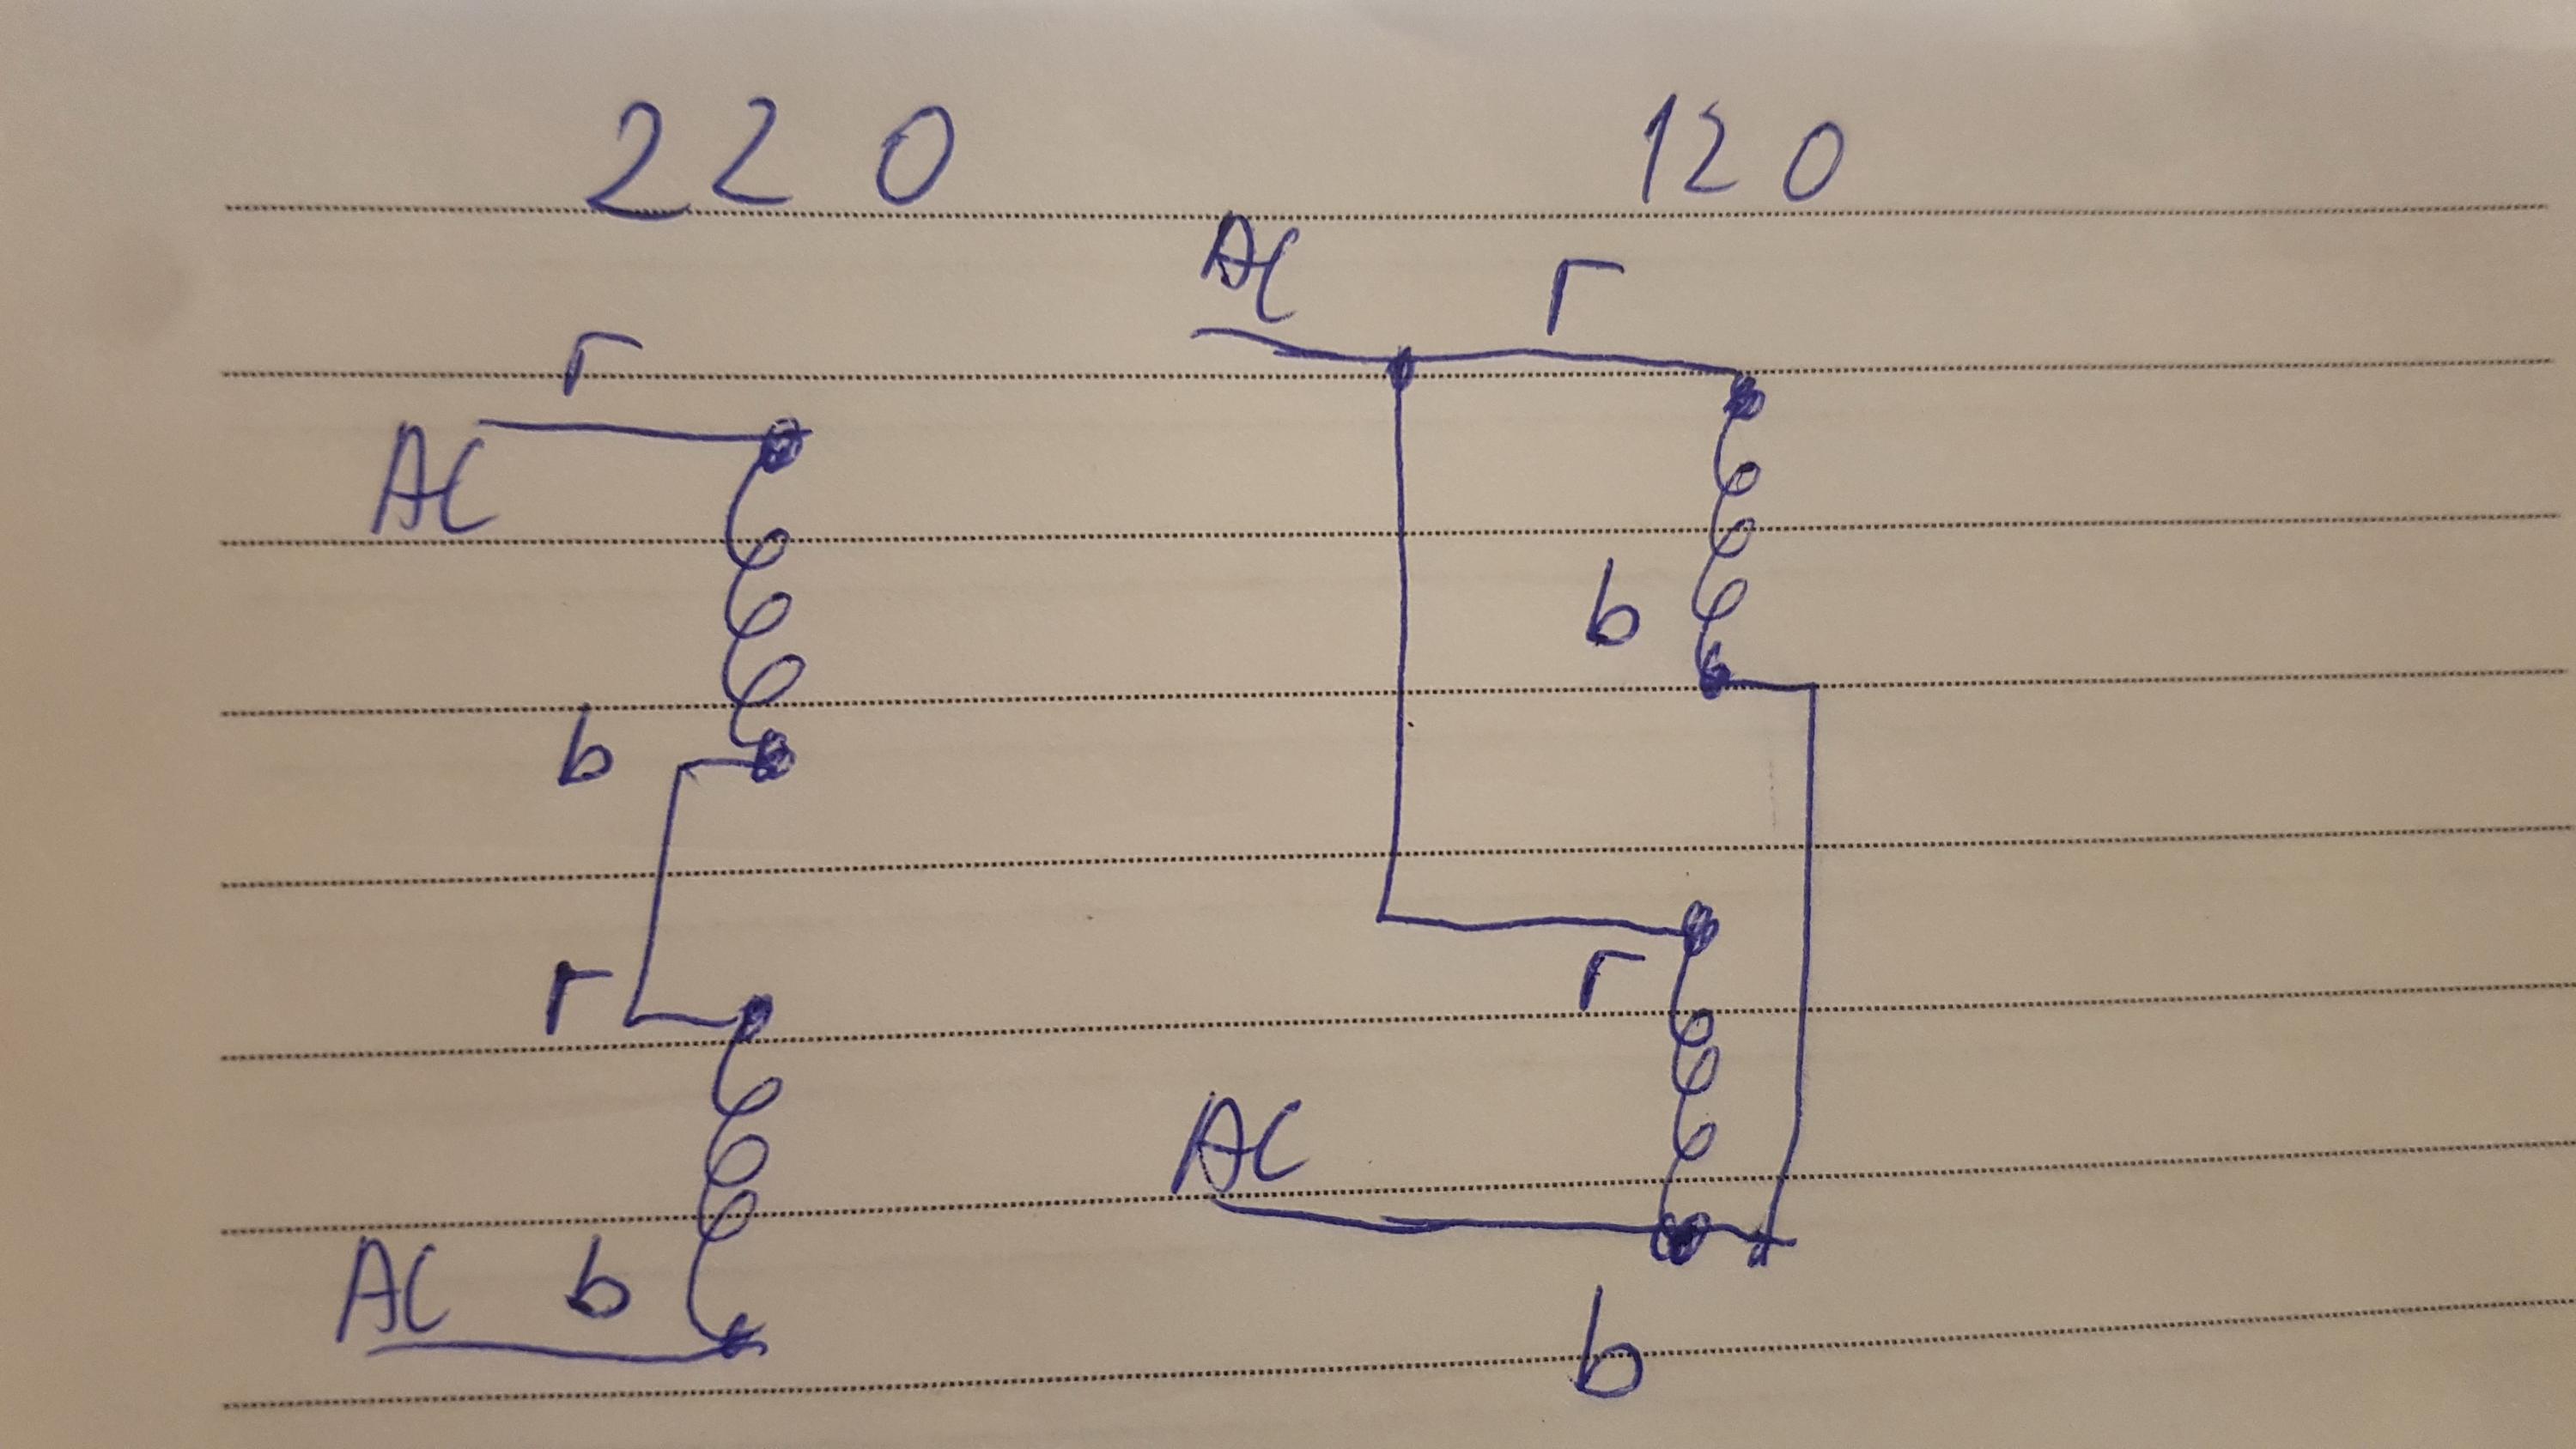 220
r
AC
b
r
AC b
120
AC
r
b
r
AC
b